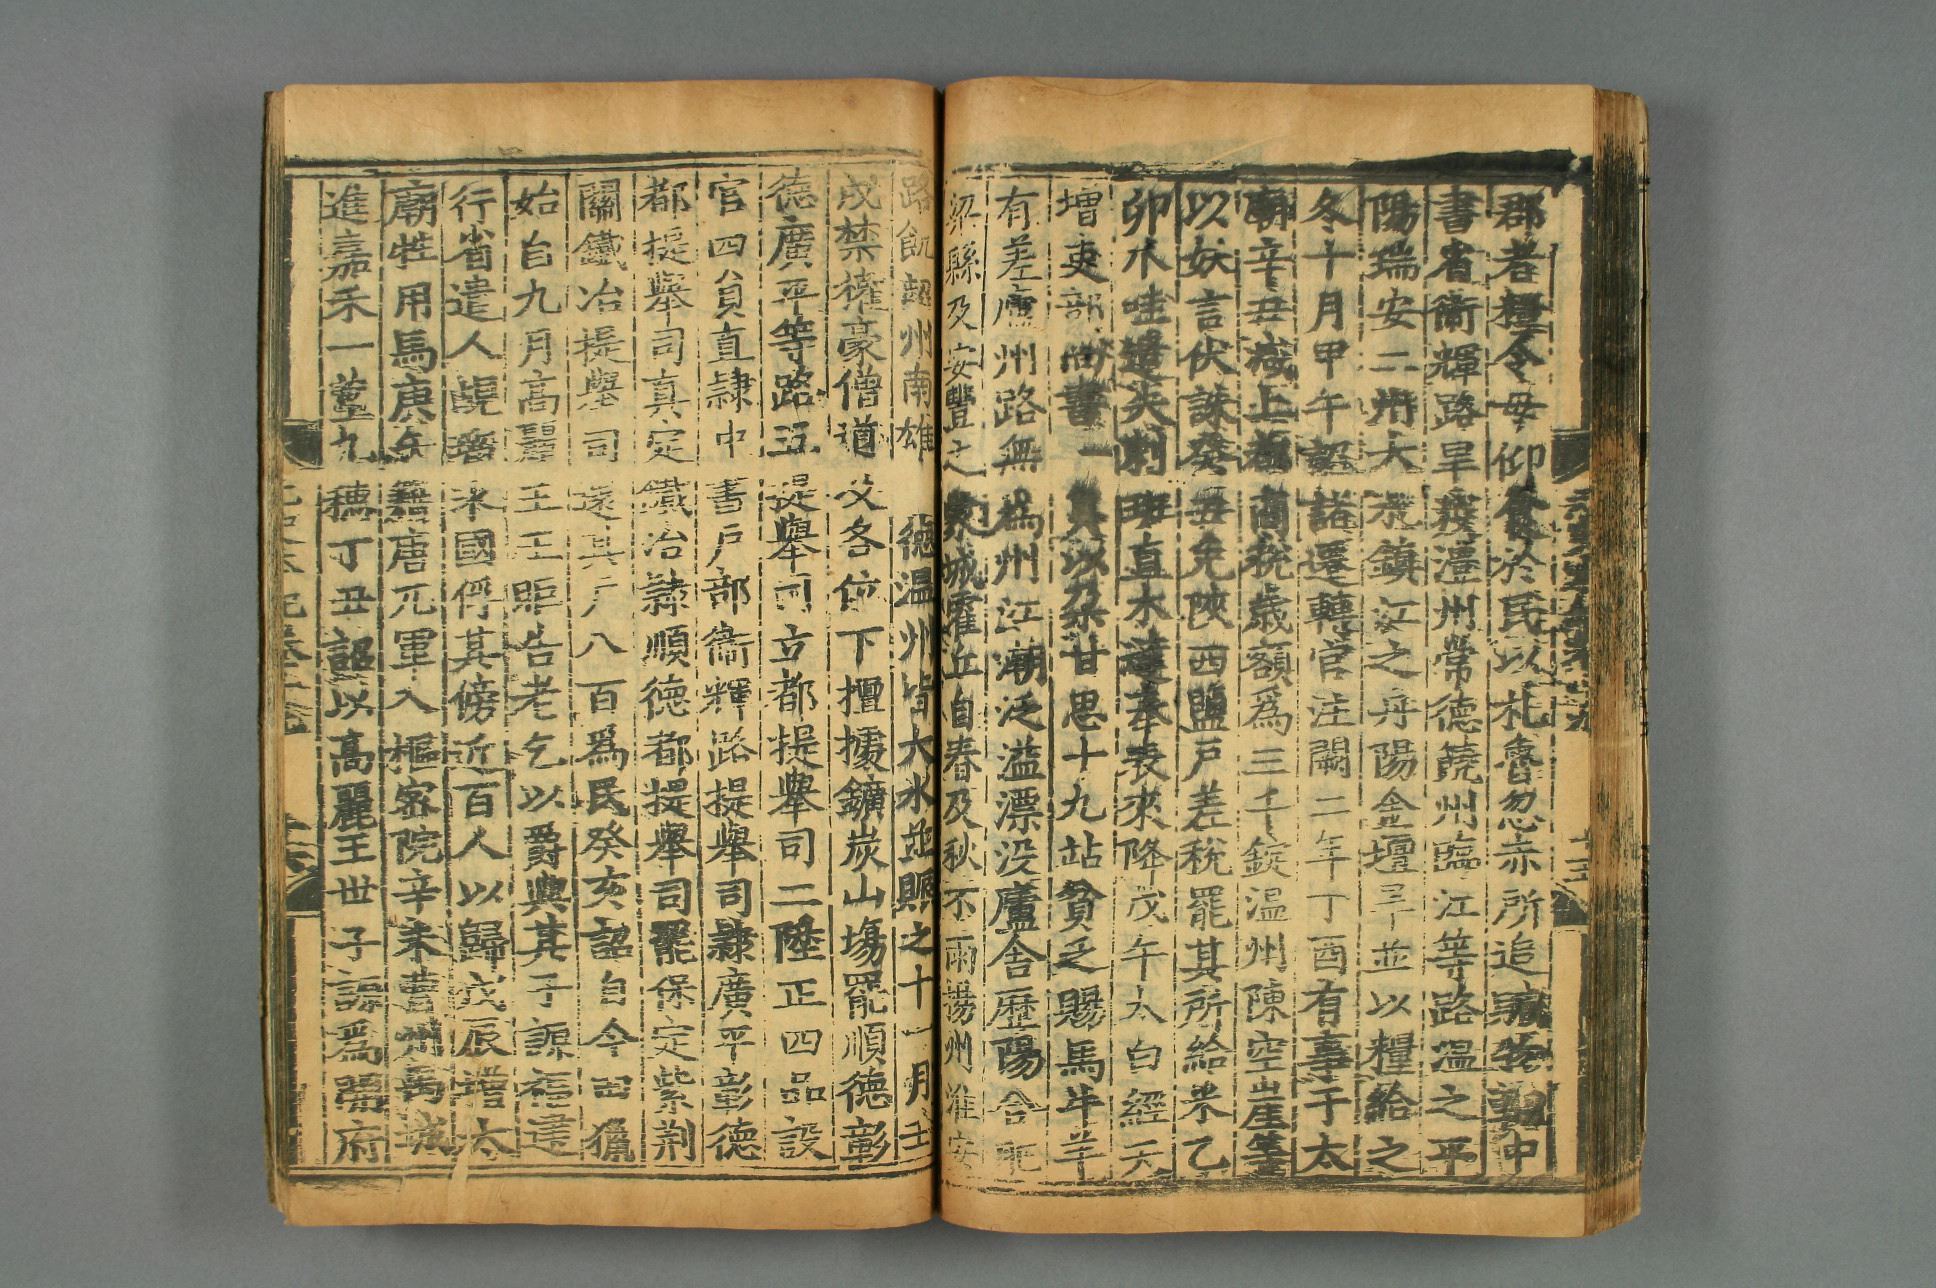 郡者糧令毋仰食於民以札魯忽赤所追贓物輸中
書省衛輝路旱疫澧州常德饒州臨江等路溫之平
陽瑞安二州大水鎮江之丹陽金壇旱並以糧給之
冬十月甲午詔諸遷轉官注闕二年丁酉有事于太
廟辛丑減上都商稅歲額爲三千錠溫州陳空崖等
以妖言伏誅癸丑免陝西鹽戶差稅罷其所給米乙
卯爪哇遣失剌班直木達奉表來降戊午太白經天
增吏部尚書一員以朶甘思十九站貧乏賜馬牛羊
有差廬州路無爲州江潮泛溢漂没廬舍歷陽合肥
梁縣及安豐之蒙城霍丘自春及秋不雨揚州淮安
路飢韶州南雄 德溫州皆大水並賑之十一月壬
戌禁權豪僧道父各位下擅據鑛炭山塲罷順德彰
德廣平等路五提舉司立都提舉司二陞正四品設
官四員直隷中書戶部衞輝路提舉司隷廣平彰德
都提舉司真定鐵冶隷順德都提舉司罷保定紫荆
關鐵冶提舉司還其戶八百爲民癸亥詔自今田獵
始自九月高麗王王昛告老乞以爵與其子謜福建
行省遣人覘瑠求國俘其傍近百人以歸戊辰增太
廟牲用馬庚午籍唐兀軍入樞密院辛未曹州禹城
進嘉禾一莖九穗丁丑詔以高麗王世子謜爲開府